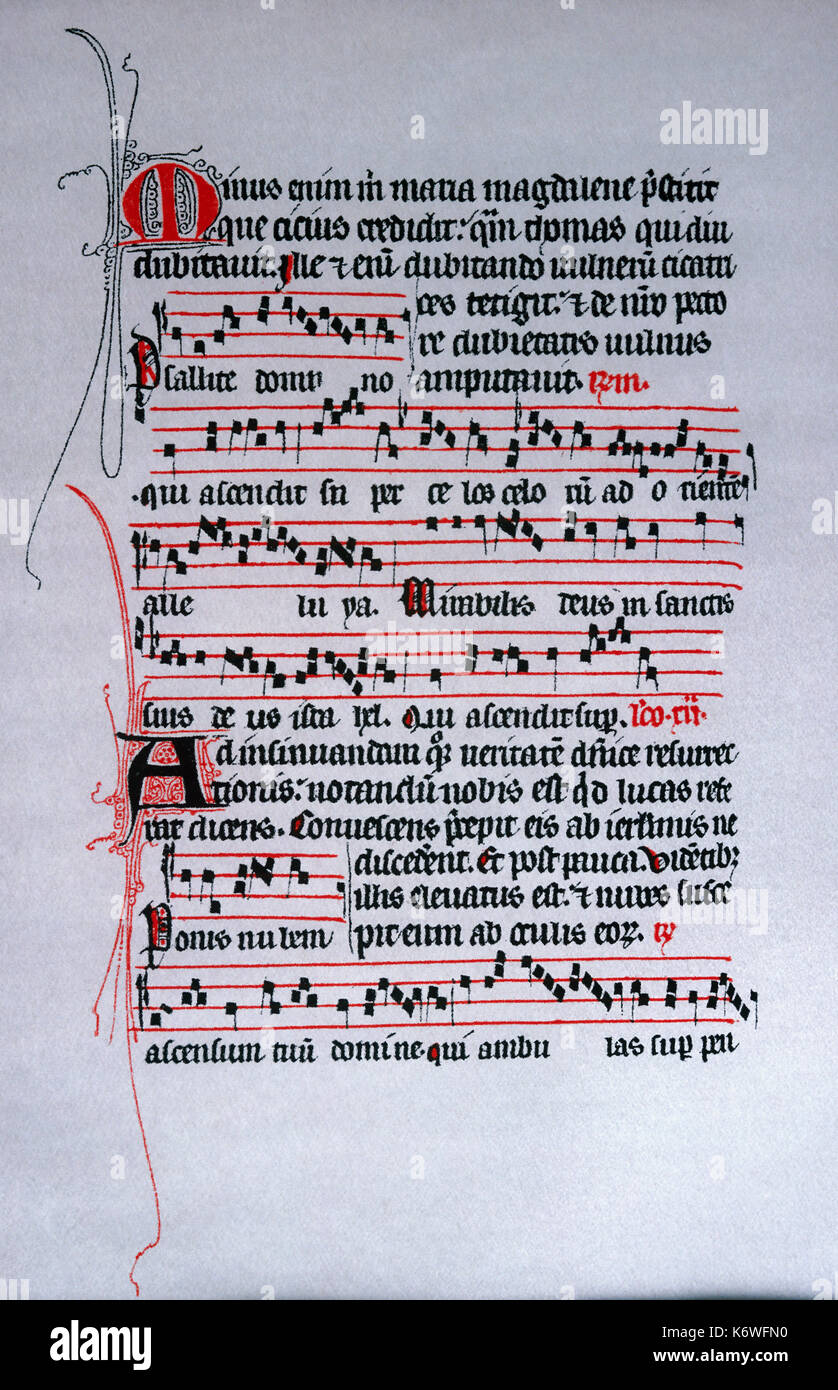 Minus enim m̄ maria magdalene p̄stitit
que cicius credidit: qm̄ thomas qui diu
dubitauit. Ille & enī dubitando uulnerū cicatri
ces tetigit: & de nr̄o pecto
re dubietatis uulnus
Psallite domi no amputauit. Rm.
qui ascendit su per ce los celo rū ad o rientē
alle lu ya. Mirabilis deus in sanctis
suis de us isrl ipse. Qui ascendit sup. lc̄o. iii.
Ad insinuandum quoq; ueritatē dn̄ice resurrec
tionis: notandū nobis est qd lucas refe
rat dicens. Conuescens p̄cepit eis ab ierl̄imis ne
discederent. Et post pauca. Uidentibꝫ
illis eleuatus est. & nubes susce
Ponis nubem pit eum ab oculis eoꝝ. R
ascensum tuū domine. qui ambu las sup pen
alamy
Image ID: K6WFN0
www.alamy.com